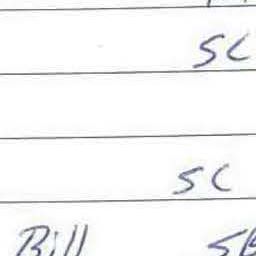 SC
SC
Bill SB